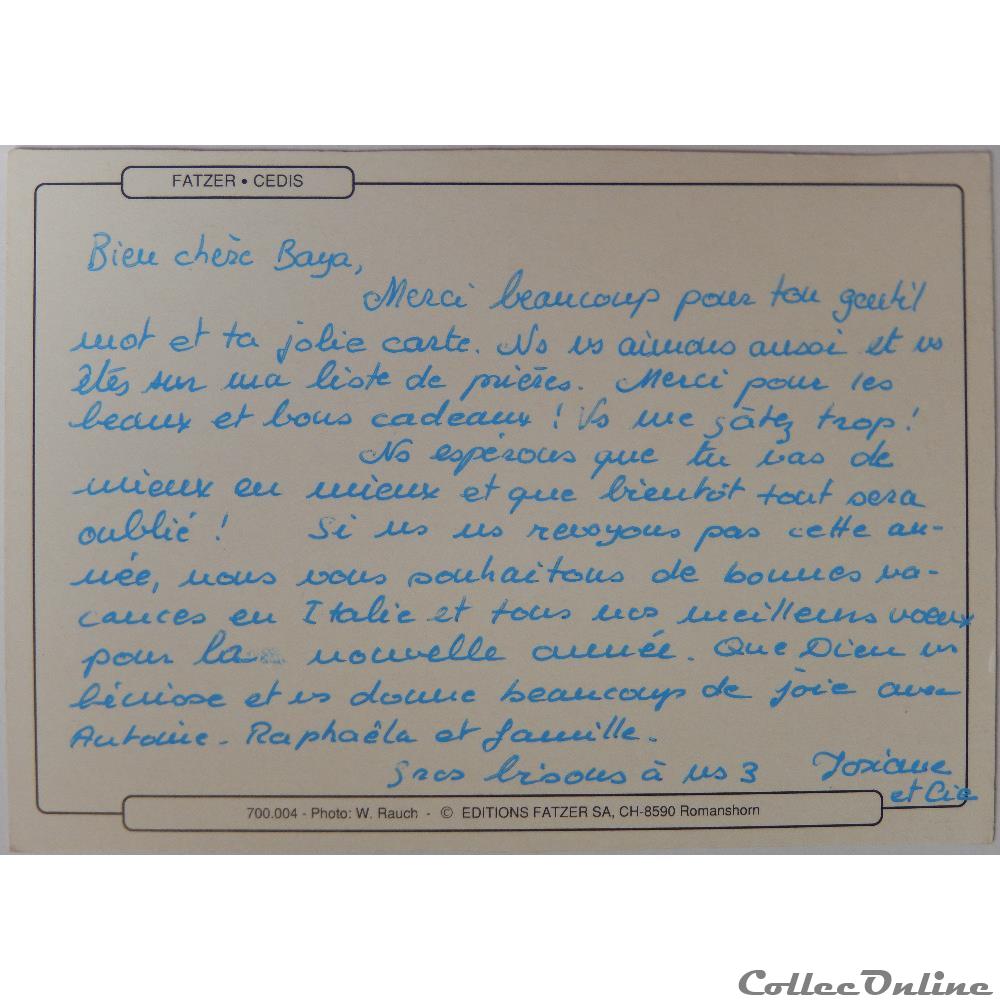 FATZER • CEDIS
Bien chère Baya,
Merci beaucoup pour ton gentil
mot et ta jolie carte. Ns vs aimons aussi et vs
êtes sur ma liste de prières. Merci pour les
beaux et bons cadeaux ! Vs me gâtez trop !
Ns espérons que tu vas de
mieux en mieux et que bientôt tout sera
oublié ! Si ns ns revoyons pas cette an-
née, nous vous souhaitons de bonnes va-
cances en Italie et tous nos meilleurs voeux
pour la nouvelle année. Que Dieu vs
bénisse et vs donne beaucoup de joie avec
Antoine - Raphaëla et famille.
Gros bisous à vs 3 Josiane
et Cie
700.004 - Photo: W. Rauch - © EDITIONS FATZER SA, CH-8590 Romanshorn
CollecOnline